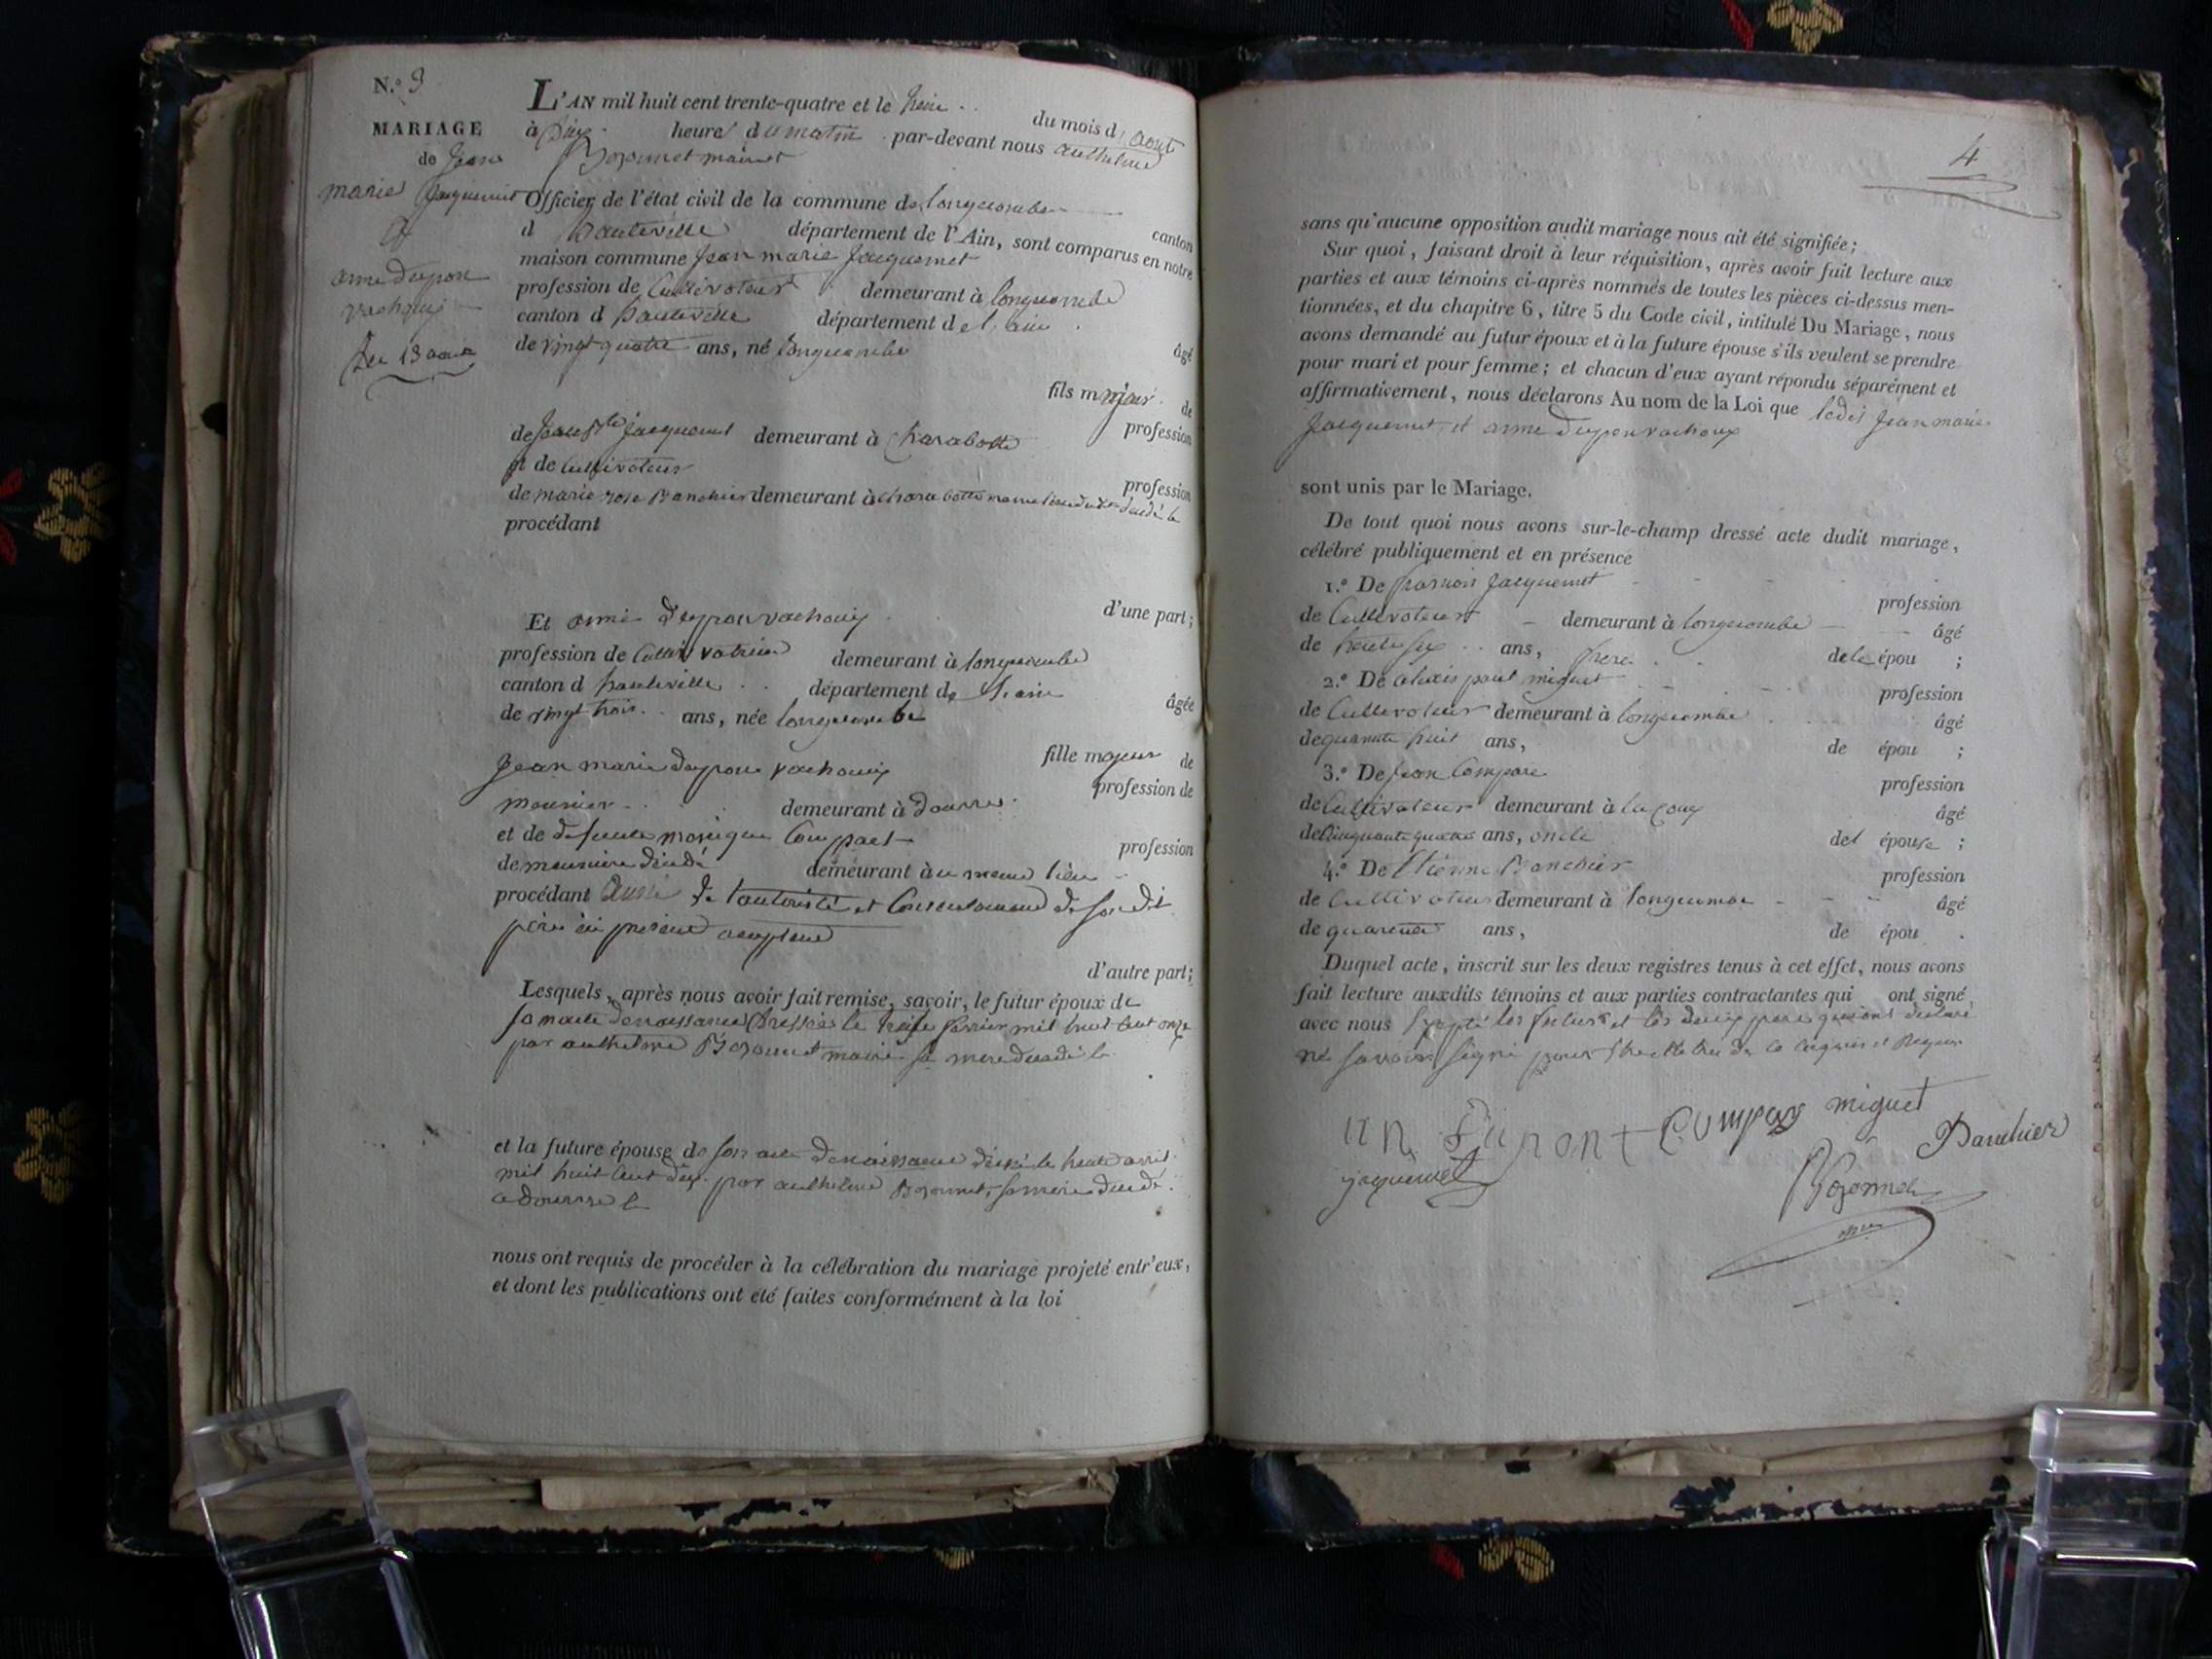 N.° 3
MARIAGE
de Jean
marie Jacquemet
Et
anne dupon
vachoux
Le 13 aout
L'AN mil huit cent trente-quatre et le treize du mois d'aout
à dix heure du matin par-devant nous anthelme
Bozonnet maire
Officier de l'état civil de la commune de longecombe canton
d hauteville département de l'Ain, sont comparus en notre
maison commune Jean marie Jacquemet
profession de Cultivateur demeurant à longecombe
canton d hauteville département de l'ain âgé
de vingt quatre ans, né longecombe
fils majeur de
de Jean Jacquemet demeurant à Charabotte profession
et de Cultivateur
de marie rose Banchier demeurant à charabotte profession
procédant
d'une part;
Et anne dupon vachoux
profession de Cultivatrice demeurant à longecombe
canton d hauteville département de l'ain âgée
de vingt trois ans, née longecombe
fille majeur de
Jean marie dupon vachoux profession de
meunier demeurant à
et de defunte monique Compart profession
de meuniere décédé demeurant au meme lieu
procédant de l'autorité et Consentement de son dit
père ici présent
d'autre part;
Lesquels, après nous avoir fait remise, savoir, le futur époux de
le treize fevrier mil huit cent onze
par anthelme Bozonnet maire sa mere décédé le
et la future épouse de son acte de naissance le trente avril
mil huit cent dix par anthelme Bozonnet, sa mère décédé
nous ont requis de procéder à la célébration du mariage projeté entr'eux,
et dont les publications ont été faites conformément à la loi
4
sans qu'aucune opposition audit mariage nous ait été signifiée;
Sur quoi, faisant droit à leur réquisition, après avoir fait lecture aux
parties et aux témoins ci-après nommés de toutes les pièces ci-dessus men-
tionnées, et du chapitre 6, titre 5 du Code civil, intitulé Du Mariage, nous
avons demandé au futur époux et à la future épouse s'ils veulent se prendre
pour mari et pour femme; et chacun d'eux ayant répondu séparément et
affirmativement, nous déclarons Au nom de la Loi que ledit Jean marie
Jacquemet et anne dupon vachoux
sont unis par le Mariage.
De tout quoi nous avons sur-le-champ dressé acte dudit mariage,
célébré publiquement et en présence
1.° De Jacquemet profession
de Cultivateur demeurant à longecombe âgé
de trente six ans, frere de le épou ;
2.° De alexis paul miguet profession
de Cultivateur demeurant à longecombe âgé
de quarante huit ans, de épou ;
3.° De Jean Compare profession
de Cultivateur demeurant à lacoux âgé
de Cinquante quatre ans, oncle de l épouse ;
4.° De Etienne Banchier profession
de Cultivateur demeurant à longecombe âgé
de quarente ans, de épou .
Duquel acte, inscrit sur les deux registres tenus à cet effet, nous avons
fait lecture auxdits témoins et aux parties contractantes qui ont signé
avec nous les futurs et les deux pere qui ont declaré
ne savoir signé pour de ce enquis et requis
un Dupont Compar miguet
jaquemet Banchier
Bozonnet
maire